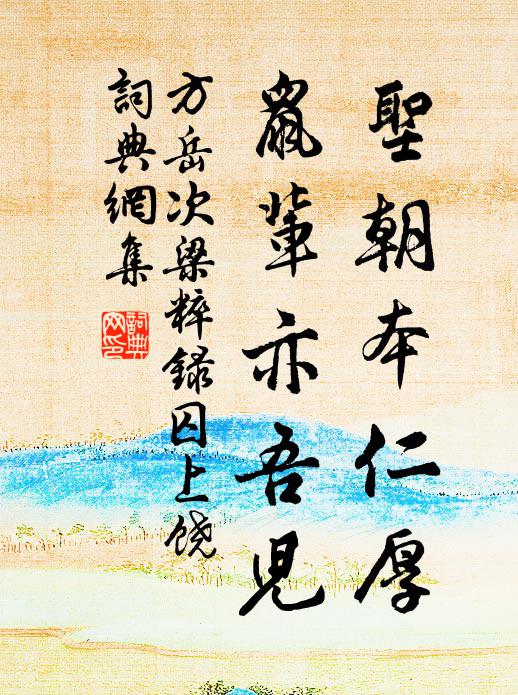 聖朝本仁厚
鼠輩亦吾兒
方岳次梁粹録囚上饶
詞典網集
詞典
网印